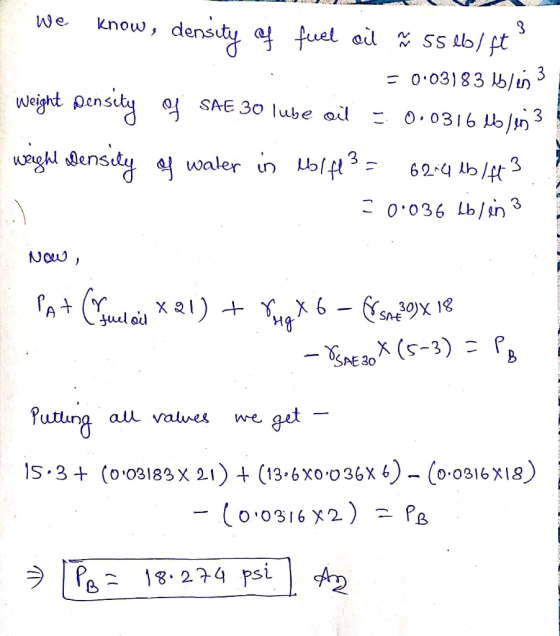 We know, density of fuel oil ≈ 55 lb/ft³
= 0.03183 lb/in³
Weight Density of SAE 30 lube oil = 0.0316 lb/in³
weight Density of water in lb/ft³ = 62.4 lb/ft³
= 0.036 lb/in³
Now,
P_A + (γ_fuel oil × 21) + γ_Hg × 6 - (γ_SAE 30) × 18
- γ_SAE 30 × (5-3) = P_B
Putting all values we get -
15.3 + (0.03183 × 21) + (13.6×0.036×6) - (0.0316×18)
- (0.0316×2) = P_B
⇒ P_B = 18.274 psi